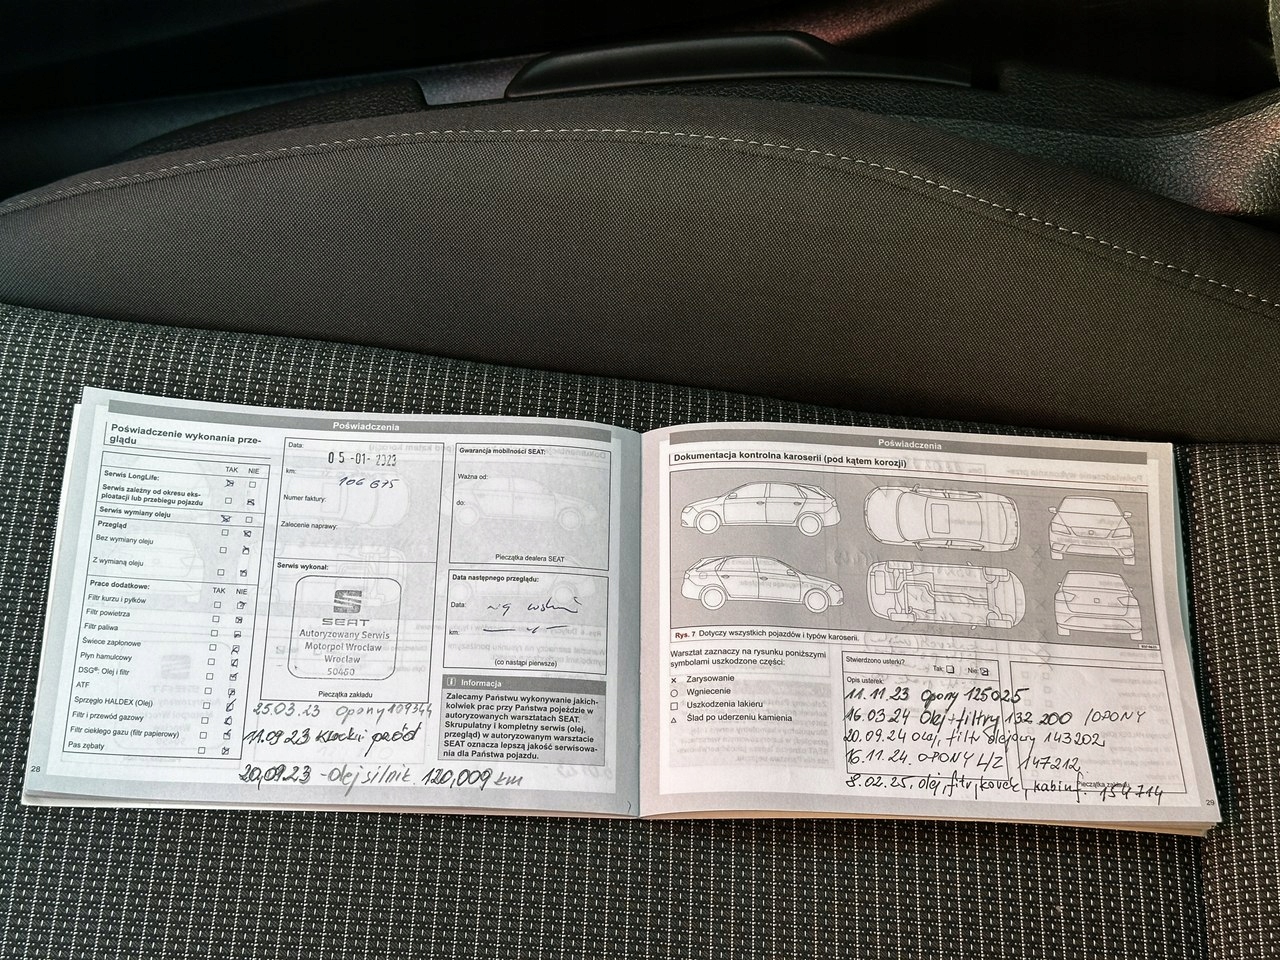 Poświadczenia
Poświadczenie wykonania prze-
glądu
TAK NIE
Serwis LongLife:
Serwis zależny od okresu eks-
ploatacji lub przebiegu pojazdu
Serwis wymiany oleju
Przegląd
Bez wymiany oleju
Z wymianą oleju
Prace dodatkowe: TAK NIE
Filtr kurzu i pyłków
Filtr powietrza
Filtr paliwa
Świece zapłonowe
Płyn hamulcowy
DSG®: Olej i filtr
ATF
Sprzęgło HALDEX (Olej)
Filtr i przewód gazowy
Filtr ciekłego gazu (filtr papierowy)
Pas zębaty
28
Data:
05-01-2023
km:
106 675
Numer faktury:
Zalecenie naprawy:
Serwis wykonał:
SEAT
Autoryzowany Serwis
Motorpol Wrocław
Wrocław
50460
Pieczątka zakładu
25.03.23 Opony 109344
11.09.23 Klocki przód
20,09.23 - Olej silnik. 120,009 km
Gwarancja mobilności SEAT:
Ważna od:
do:
Pieczątka dealera SEAT
Data następnego przeglądu:
Data:
km:
(co nastąpi pierwsze)
i Informacja
Zalecamy Państwu wykonywanie jakich-
kolwiek prac przy Państwa pojeździe w
autoryzowanych warsztatach SEAT.
Skrupulatny i kompletny serwis (olej,
przegląd) w autoryzowanym warsztacie
SEAT oznacza lepszą jakość serwisowa-
nia dla Państwa pojazdu.
Poświadczenia
Dokumentacja kontrolna karoserii (pod kątem korozji)
Rys. 7 Dotyczy wszystkich pojazdów i typów karoserii.
Warsztat zaznaczy na rysunku poniższymi
symbolami uszkodzone części:
× Zarysowanie
○ Wgniecenie
□ Uszkodzenia lakieru
△ Ślad po uderzeniu kamienia
Stwierdzono usterki?
Tak: Nie:
Opis usterek:
11.11.23 Opony 125025
16.03.24 Olej + filtry 132 200 /OPONY
20.09.24 Olej, filtr olejowy 143202
16.11.24. OPONY L/Z 147212
8.02.25, olej, filtr, kabin. 154714
Pieczątka zakładu
29